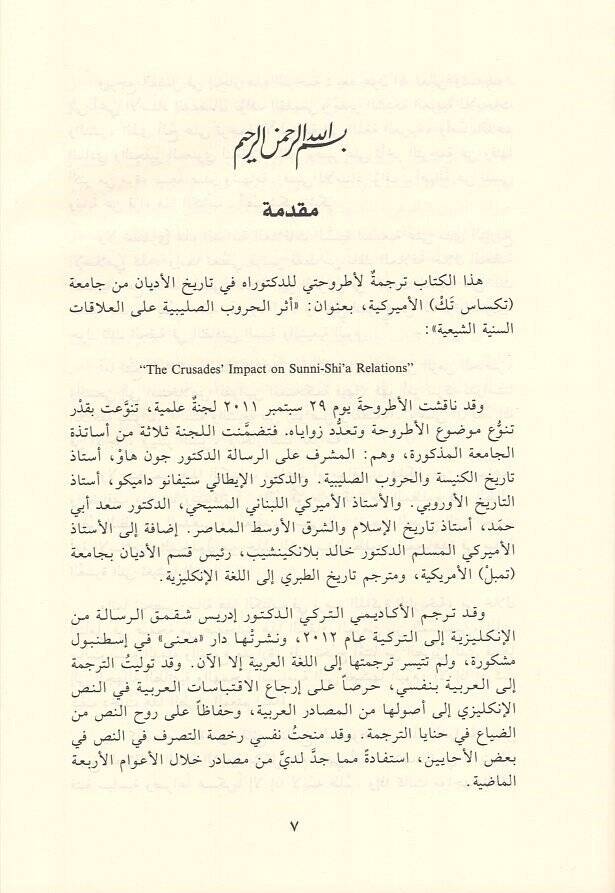 بسم الله الرحمن الرحيم
مقدمة
هذا الكتاب ترجمةٌ لأطروحتي للدكتوراه في تاريخ الأديان من جامعة
(تكساس تَكْ) الأميركية، بعنوان: «أثر الحروب الصليبية على العلاقات
السنية الشيعية»:
“The Crusades’ Impact on Sunni-Shi’a Relations”
وقد ناقشت الأطروحةَ يوم ٢٩ سبتمبر ٢٠١١ لجنةٌ علمية، تنوَّعت بقدْر
تنوُّع موضوع الأطروحة وتعدُّد زواياه. فتضمَّنت اللجنة ثلاثة من أساتذة
الجامعة المذكورة، وهم: المشرف على الرسالة الدكتور جون هاوْ، أستاذ
تاريخ الكنيسة والحروب الصليبية. والدكتور الإيطالي ستيفانو داميكو، أستاذ
التاريخ الأوروبي. والأستاذ الأميركي اللبناني المسيحي، الدكتور سعد أبي
حمَد، أستاذ تاريخ الإسلام والشرق الأوسط المعاصر. إضافة إلى الأستاذ
الأميركي المسلم الدكتور خالد بلانكينشيب، رئيس قسم الأديان بجامعة
(تمبلْ) الأمريكية، ومترجم تاريخ الطبري إلى اللغة الإنكليزية.
وقد ترجم الأكاديمي التركي الدكتور إدريس شقمق الرسالة من
الإنكليزية إلى التركية عام ٢٠١٢، ونشرتْها دار «معنى» في إسطنبول
مشكورة، ولم تتيسر ترجمتها إلى اللغة العربية إلا الآن. وقد توليتُ الترجمة
إلى العربية بنفسي، حرصاً على إرجاع الاقتباسات العربية في النص
الإنكليزي إلى أصولها من المصادر العربية، وحفاظاً على روح النص من
الضياع في حنايا الترجمة. وقد منحتُ نفسي رخصة التصرف في النص في
بعض الأحايين، استفادةً مما جدَّ لديَّ من مصادر خلال الأعوام الأربعة
الماضية.
٧